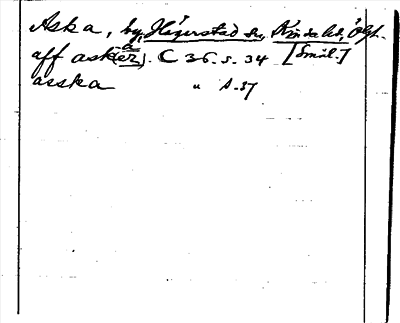 Aska, by, Högerstad sn, Kinda hd, Ögl.
aff asker. C 36. s. 34 [Smål.]
asska " s. 37